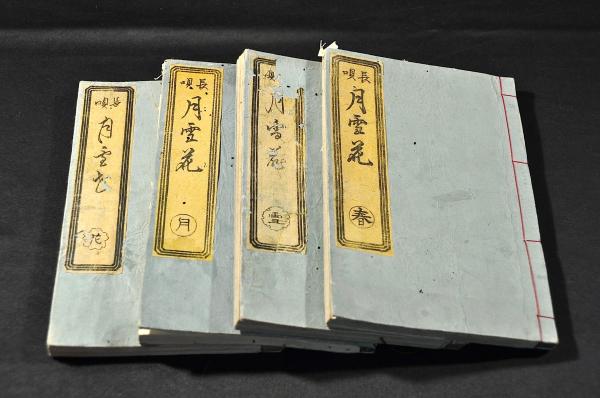 長唄
月雪花
春
長唄
月雪花
雪
長唄
月雪花
月
長唄
月雪花
花